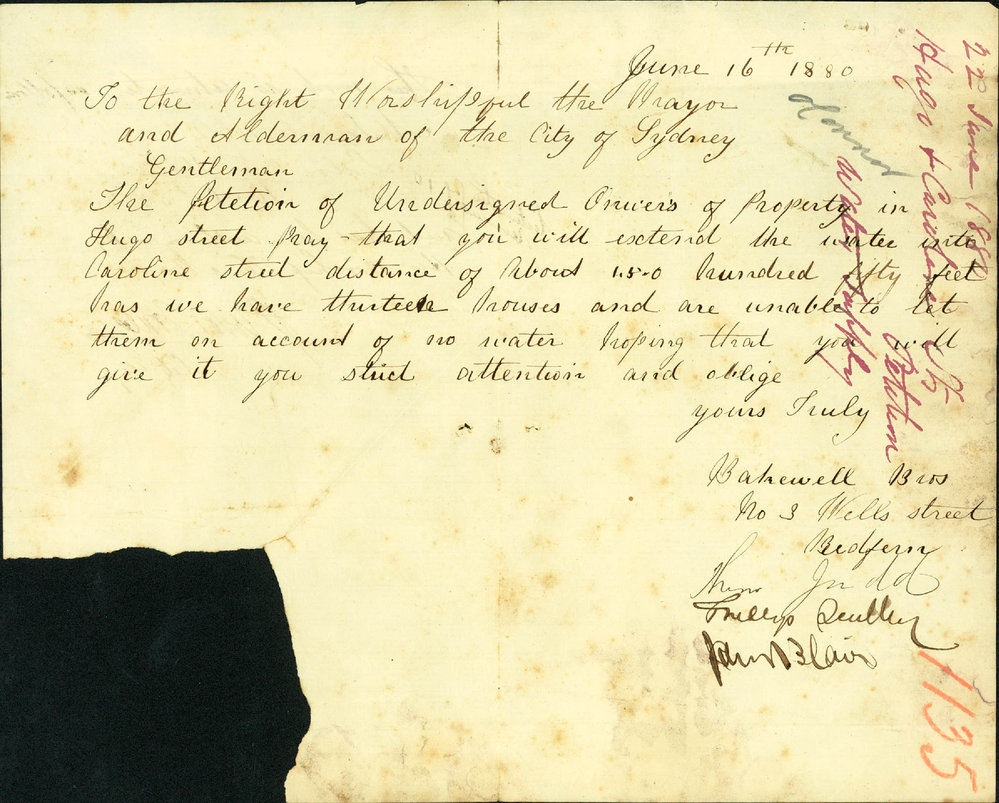 June 16th 1880
To the Right Worshipful the Mayor
and Alderman of the City of Sydney
Gentleman
The Petetion of Undersigned Owners of Property in
Hugo street Pray that you will extend the water into
Caroline street distance of About 150 hundred fifty feet
has we have thirteen houses and are unable to let
them on account of no water hoping that you will
give it you strict attention and oblige
yours Truly
Bakewell Bros
No 3 Wells street
Redfern
Thos Judd
Phillip
James Blair
22 June 1880
Hugo & Caroline St
Petition
Water Supply
1135